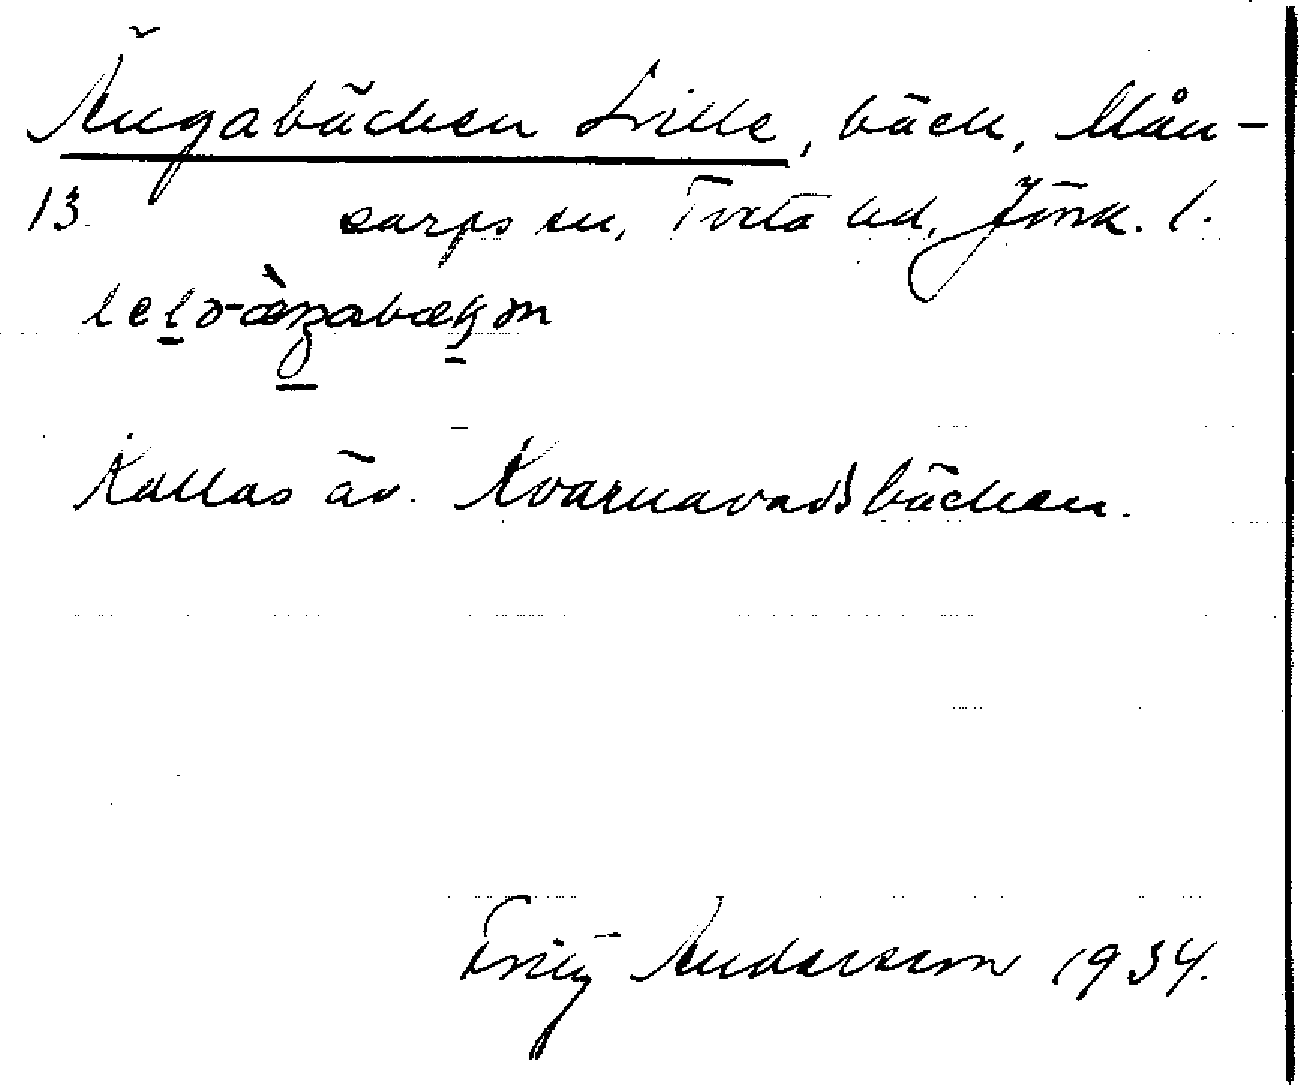 Ängabäcken Lille, bäck, Mån-
13. sarps sn, Tveta hd, Jönk. l.
Kallas äv. Kvarnavadsbäcken.
Fritz Andersson 1934.